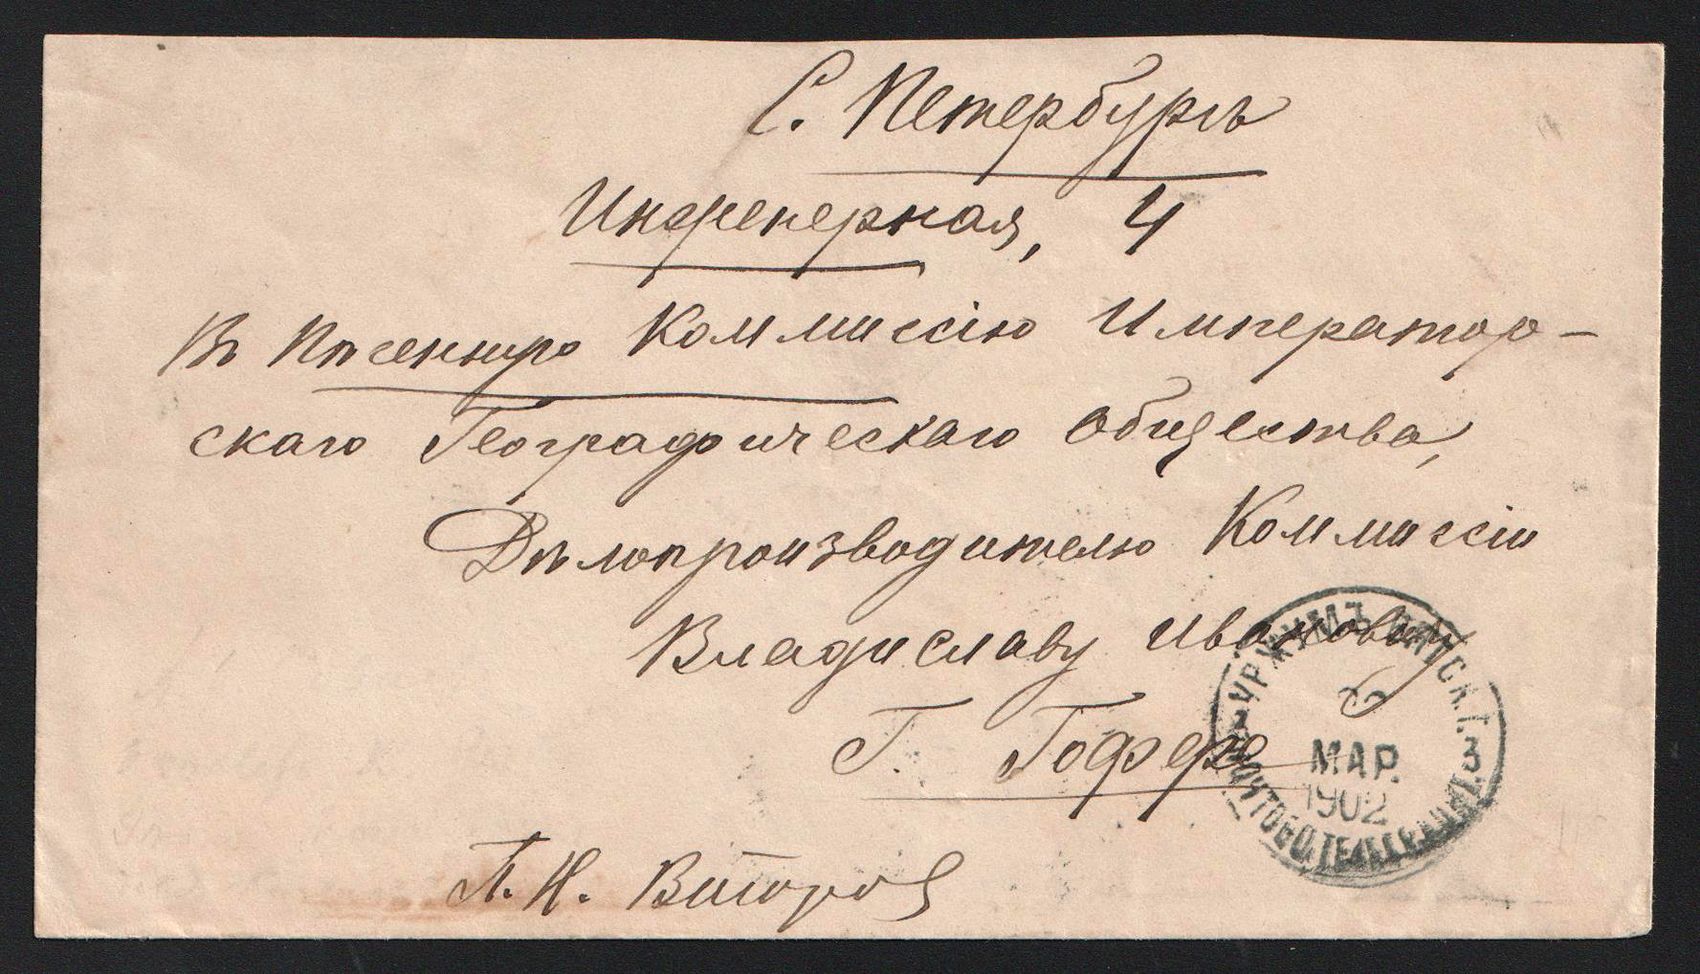 С. Петербургъ
Инженерная, 4
Въ Пѣсенную Коммиссію Император-
скаго Географическаго Общества,
Дѣлопроизводителю Коммиссіи
Владиславу Иванов
Г. Гоффе
УРЖУМЪ ВЯТСК. Г.
22
МАР.
1902
ПОЧТОВО.ТЕЛЕГР.